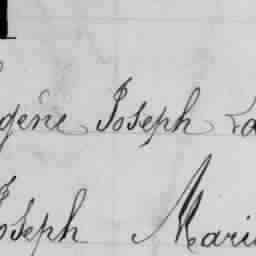 gène Joseph La
Joseph Mari